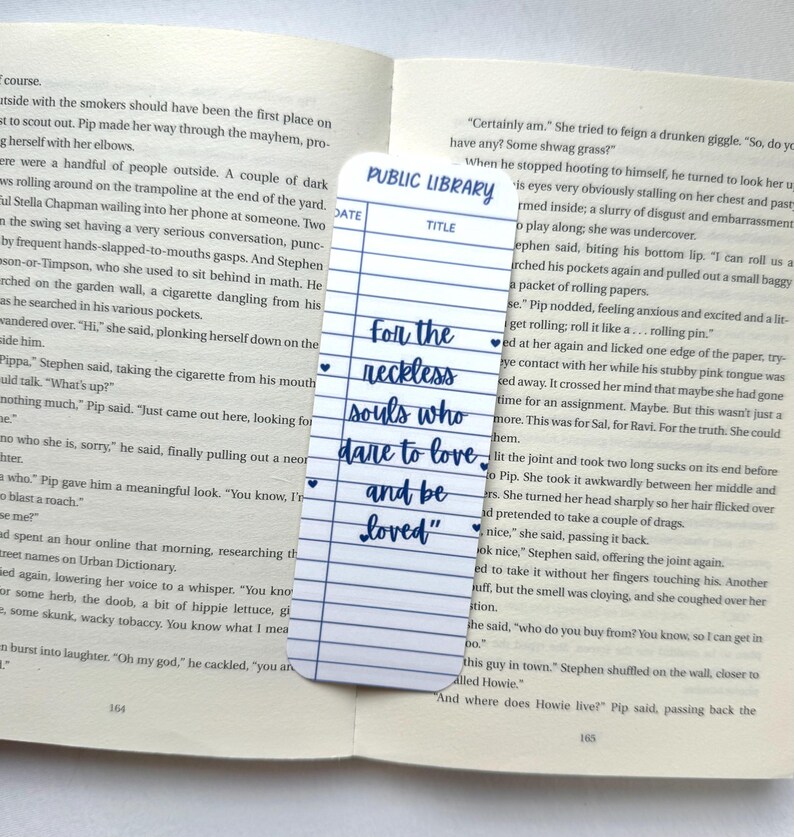 course.
outside with the smokers should have been the first place on
to scout out. Pip made her way through the mayhem, pro-
herself with her elbows.
were a handful of people outside. A couple of dark
rolling around on the trampoline at the end of the yard.
Stella Chapman wailing into her phone at someone. Two
the swing set having a very serious conversation, punc-
by frequent hands-slapped-to-mouths gasps. And Stephen
-or-Timpson, who she used to sit behind in math. He
on the garden wall, a cigarette dangling from his
as he searched in his various pockets.
wandered over. “Hi,” she said, plonking herself down on the
him.
Pippa,” Stephen said, taking the cigarette from his mouth
talk. “What’s up?”
nothing much,” Pip said. “Just came out here, looking for
no who she is, sorry,” he said, finally pulling out a neon
who.” Pip gave him a meaningful look. “You know, I’m
blast a roach.”
me?”
spent an hour online that morning, researching
street names on Urban Dictionary.
again, lowering her voice to a whisper. “You
for some herb, the doob, a bit of hippie lettuce,
some skunk, wacky tobaccy. You know what I
burst into laughter. “Oh my god,” he cackled, “you
164
PUBLIC LIBRARY
DATE
TITLE
For the
reckless
souls who
dare to love
and be
loved”
“Certainly am.” She tried to feign a drunken giggle. “So, do
have any? Some shwag grass?”
When he stopped hooting to himself, he turned to look her
his eyes very obviously stalling on her chest and
inside; a slurry of disgust and embarrassment
play along; she was undercover.
Stephen said, biting his bottom lip. “I can roll us a
his pockets again and pulled out a small baggy
a packet of rolling papers.
Pip nodded, feeling anxious and excited and a lit-
get rolling; roll it like a . . . rolling pin.”
at her again and licked one edge of the paper, try-
eye contact with her while his stubby pink tongue was
away. It crossed her mind that maybe she had gone
time for an assignment. Maybe. But this wasn’t just a
more. This was for Sal, for Ravi. For the truth. She could
them.
lit the joint and took two long sucks on its end before
to Pip. She took it awkwardly between her middle and
She turned her head sharply so her hair flicked over
and pretended to take a couple of drags.
nice,” she said, passing it back.
nice,” Stephen said, offering the joint again.
to take it without her fingers touching his. Another
but the smell was cloying, and she coughed over her
she said, “who do you buy from? You know, so I can get in
this guy in town.” Stephen shuffled on the wall, closer to
Howie.”
“And where does Howie live?” Pip said, passing back the
165